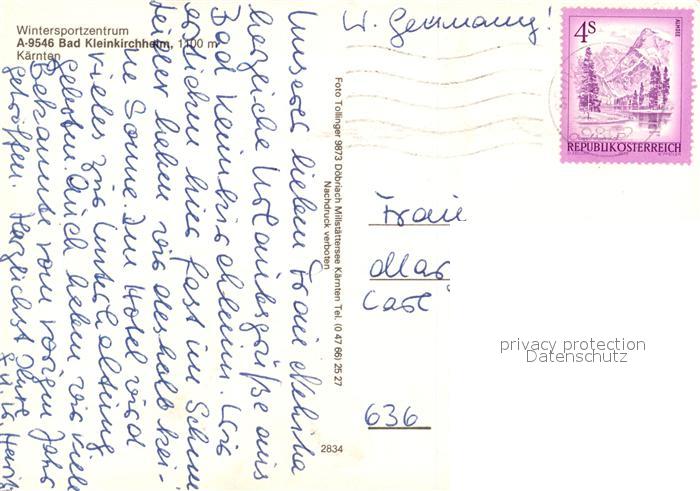 Wintersportzentrum
A-9546 Bad Kleinkirchheim, 1100 m
Kärnten
Unserer lieben Frau
herzliche Urlaubsgrüße aus
Bad Kleinkirchheim. Wir
hier fast im Schnee
leider haben wir deshalb kei-
ne Sonne. Im Hotel wird
vieles zur Unterhaltung
geboten. Auch haben wir viele
Bekannte vom vorigen Jahr
getroffen. Herzlichst Ihre
Foto Tollinger 9873 Döbriach Millstättersee Kärnten Tel. (0 47 66) 25 27
Nachdruck verboten
2834
W. Germany!
4S
ALMSEE
REPUBLIK ÖSTERREICH
Frau
Mar
Carl
636
privacy protection
Datenschutz